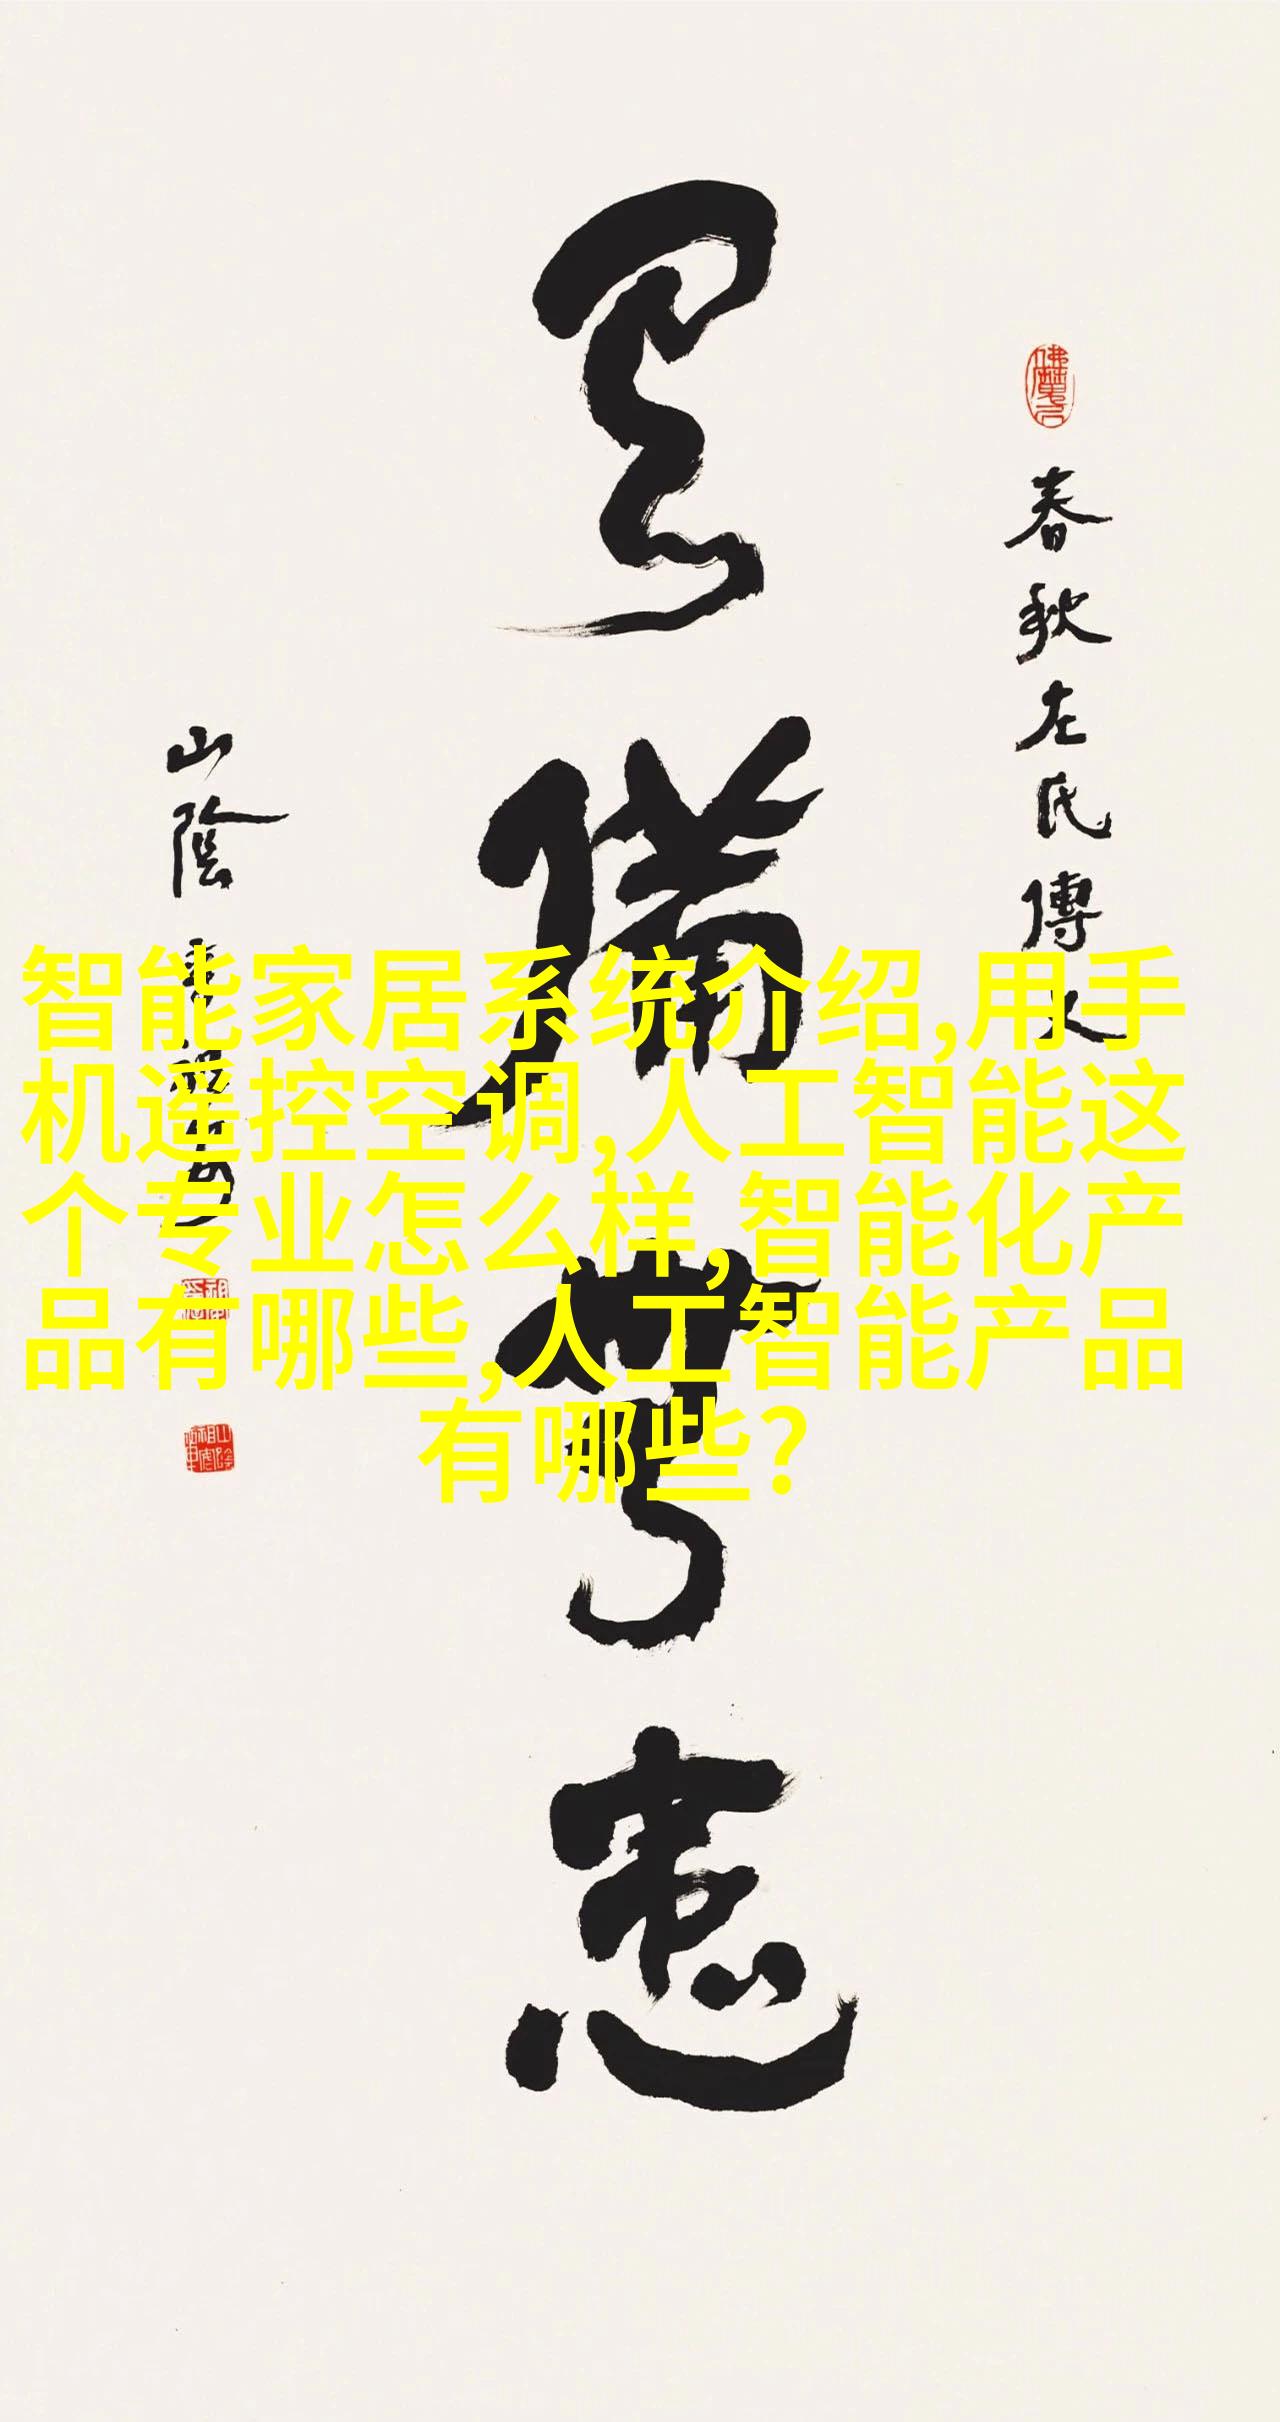 春秋左氏傳文
有備無患
山陰
智能家居系统介绍,用手
机遥控空调,人工智能这
个专业怎么样,智能化产
品有哪些,人工智能产品
有哪些?